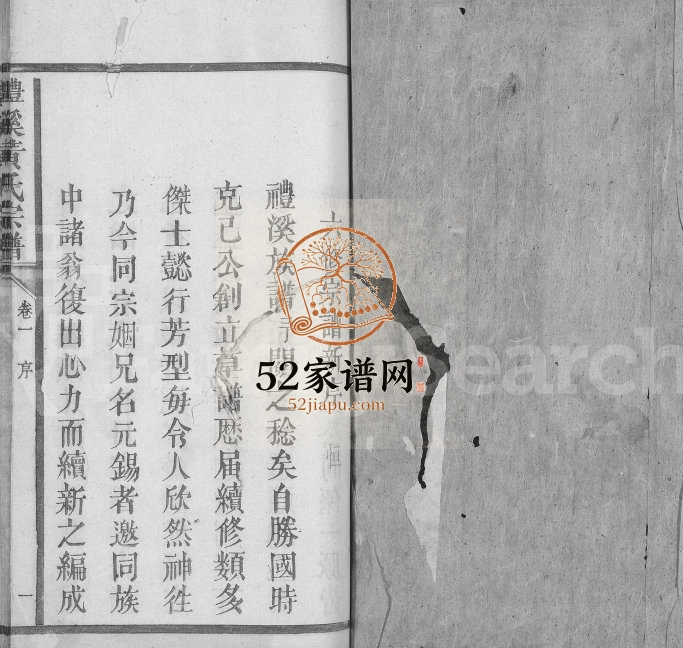 宗譜新序
禮溪族譜之稔矣自勝國時
克己公創立草譜歷届續修類多
傑士懿行芳型每令人欣然神徃
乃今同宗姻兄名元錫者邀同族
中諸翁復出心力而續新之編成
禮溪黃氏宗譜
卷一 序
一
52家谱网
52jiapu.com
Search